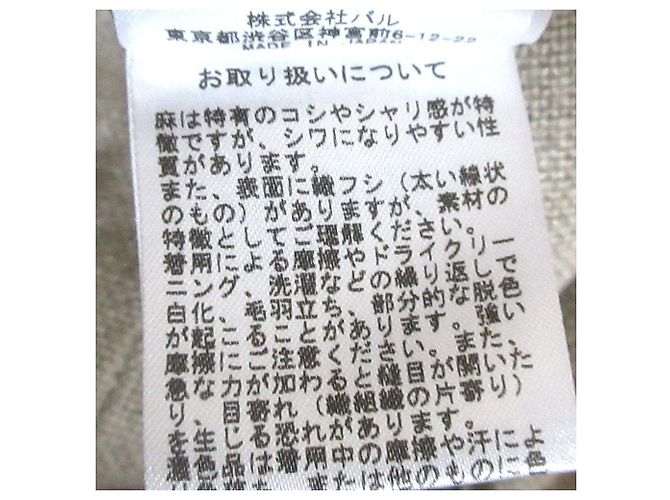 株式会社パル
東京都渋谷区神宮前6-12-22
MADE IN JAPAN
お取り扱いについて
麻は特有のコシやシャリ感が特
徴ですが、シワになりやすい性
質があります。
また、表面に繊フシ（太い線状
のもの）がありますが、素材の
特徴としてご理解ください。
着用による摩擦やドライクリー
ニング、洗濯などの繰り返しで
白化、毛羽立ち、部分的な脱色
が起こることがあります。強い
摩擦にご注意ください。また、
急な力が加わると縫い目が開いた
り、目寄れ（織組織の片寄り）
を生じる恐れがあります。
濃色品は着用中の摩擦や汗によ